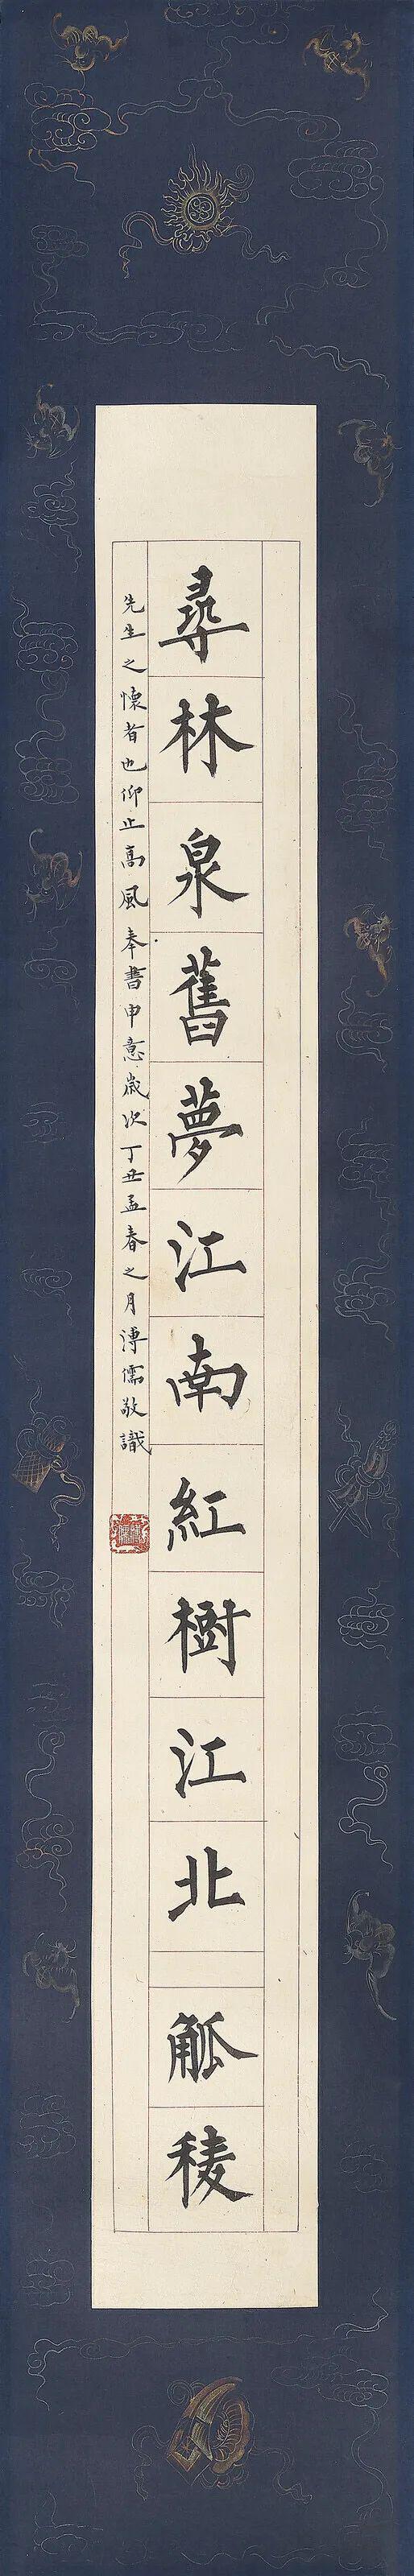 尋林泉舊夢江南紅樹江北觚稜
先生之懷者也仰止高風奉書申意歲次丁丑孟春之月溥儒敬識